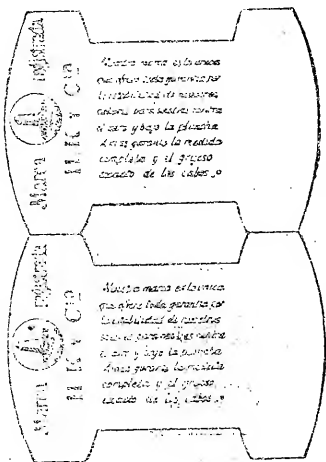 Marca registrada
H. K y Cía
Nuestra marca es la unica
que ofrece toda garantia por
la estabilidad de nuestros
colores para bestres contra
el aire y bajo la plancha
garantia la medida
completa y el grueso
exacto de los cabos
Marca registrada
H K y Cía
Nuestra marca es la unica
que ofrece toda garantia por
la estabilidad de nuestros
contra
el aire y bajo la plancha
garantia la medida
completa y el grueso
exacto de los cabos